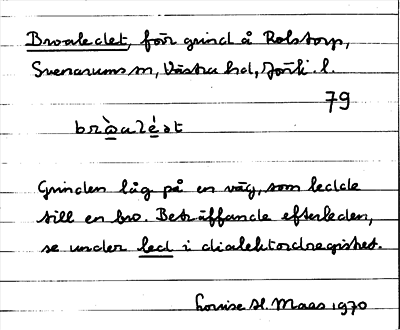 Broaledet, för grind å Rolstorp,
Svenarums sn, Västra hd, Jönk. l.
79
bròalést
Grinden låg på en väg, som ledde
till en bro. Beträffande efterleden,
se under led i dialektordregistret.
Louise H. Maas 1970